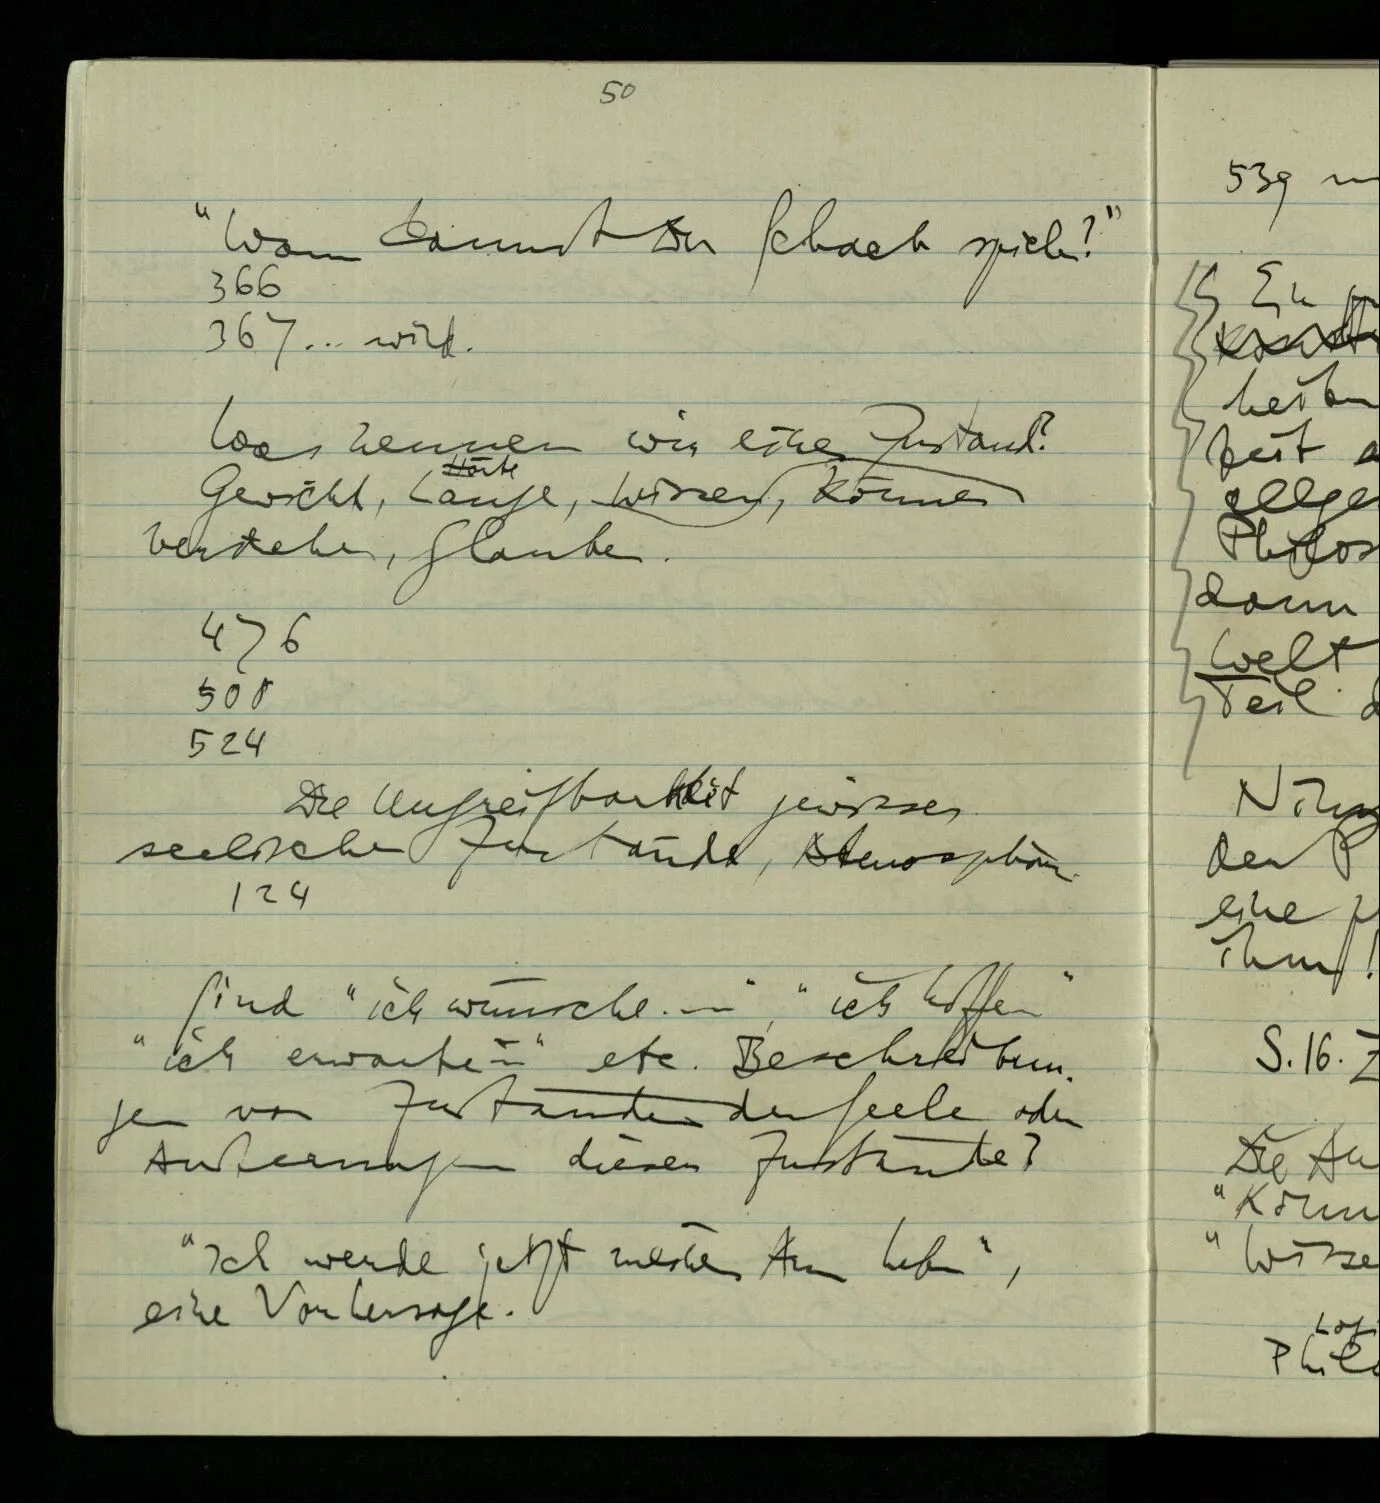 50
"Wann kannst Du Schach spielen?"
366
367... wird.
Was nennen wir einen Zustand?
Härte
Gewicht, Länge, Wissen, Können
Verstehen, Glauben.
476
508
524
Die Ungreifbarkeit gewisser
seelischer Zustände, Atmosphäre
124
Sind "ich wünsche...", "ich hoffe..."
"ich erwarte..." etc. Beschreibun-
gen von Zuständen der Seele oder
Äußerungen dieser Zustände?
"Ich werde jetzt meinen Arm heben",
eine Vorhersage.
539
Ein
heiten
Zeit
allge
Philos
dann
Welt
Teil d
den P
eine
ihm!
S. 16. Z
Die Au
"Könn
"Wisse
Log
Philo